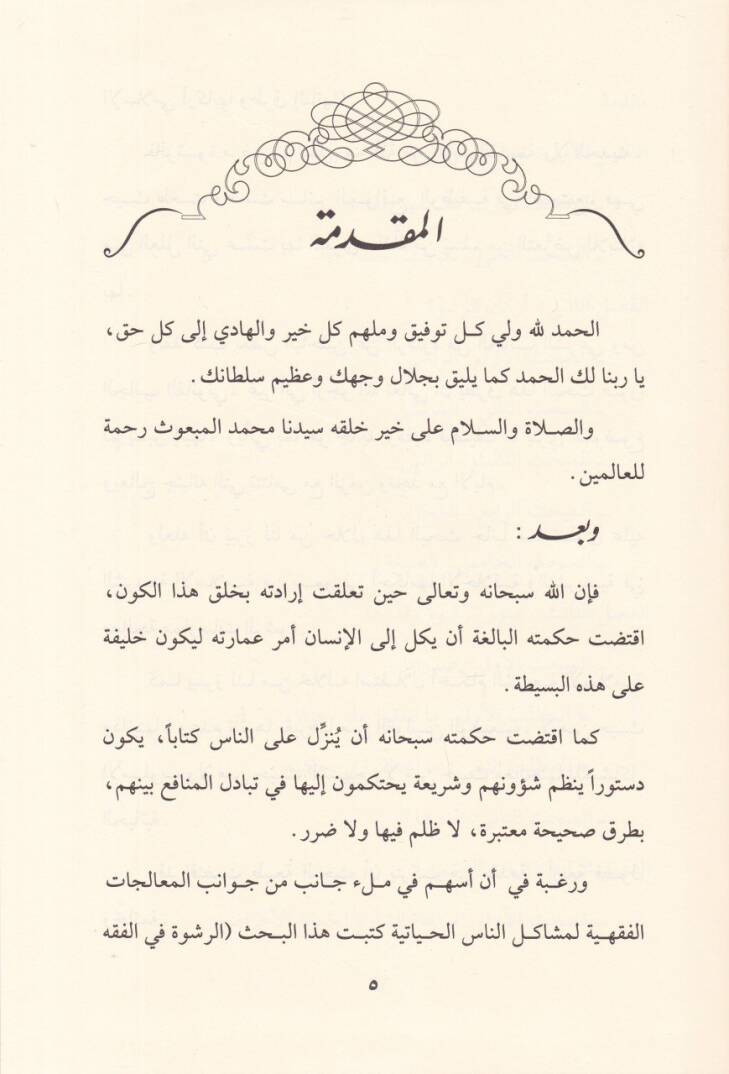 المقدمة
الحمد لله ولي كل توفيق وملهم كل خير والهادي إلى كل حق،
يا ربنا لك الحمد كما يليق بجلال وجهك وعظيم سلطانك.
والصلاة والسلام على خير خلقه سيدنا محمد المبعوث رحمة
للعالمين.
وبعد:
فإن الله سبحانه وتعالى حين تعلقت إرادته بخلق هذا الكون،
اقتضت حكمته البالغة أن يكل إلى الإنسان أمر عمارته ليكون خليفة
على هذه البسيطة.
كما اقتضت حكمته سبحانه أن يُنزِّل على الناس كتاباً، يكون
دستوراً ينظم شؤونهم وشريعة يحتكمون إليها في تبادل المنافع بينهم،
بطرق صحيحة معتبرة، لا ظلم فيها ولا ضرر.
ورغبة في أن أسهم في ملء جانب من جوانب المعالجات
الفقهية لمشاكل الناس الحياتية كتبت هذا البحث (الرشوة في الفقه
٥